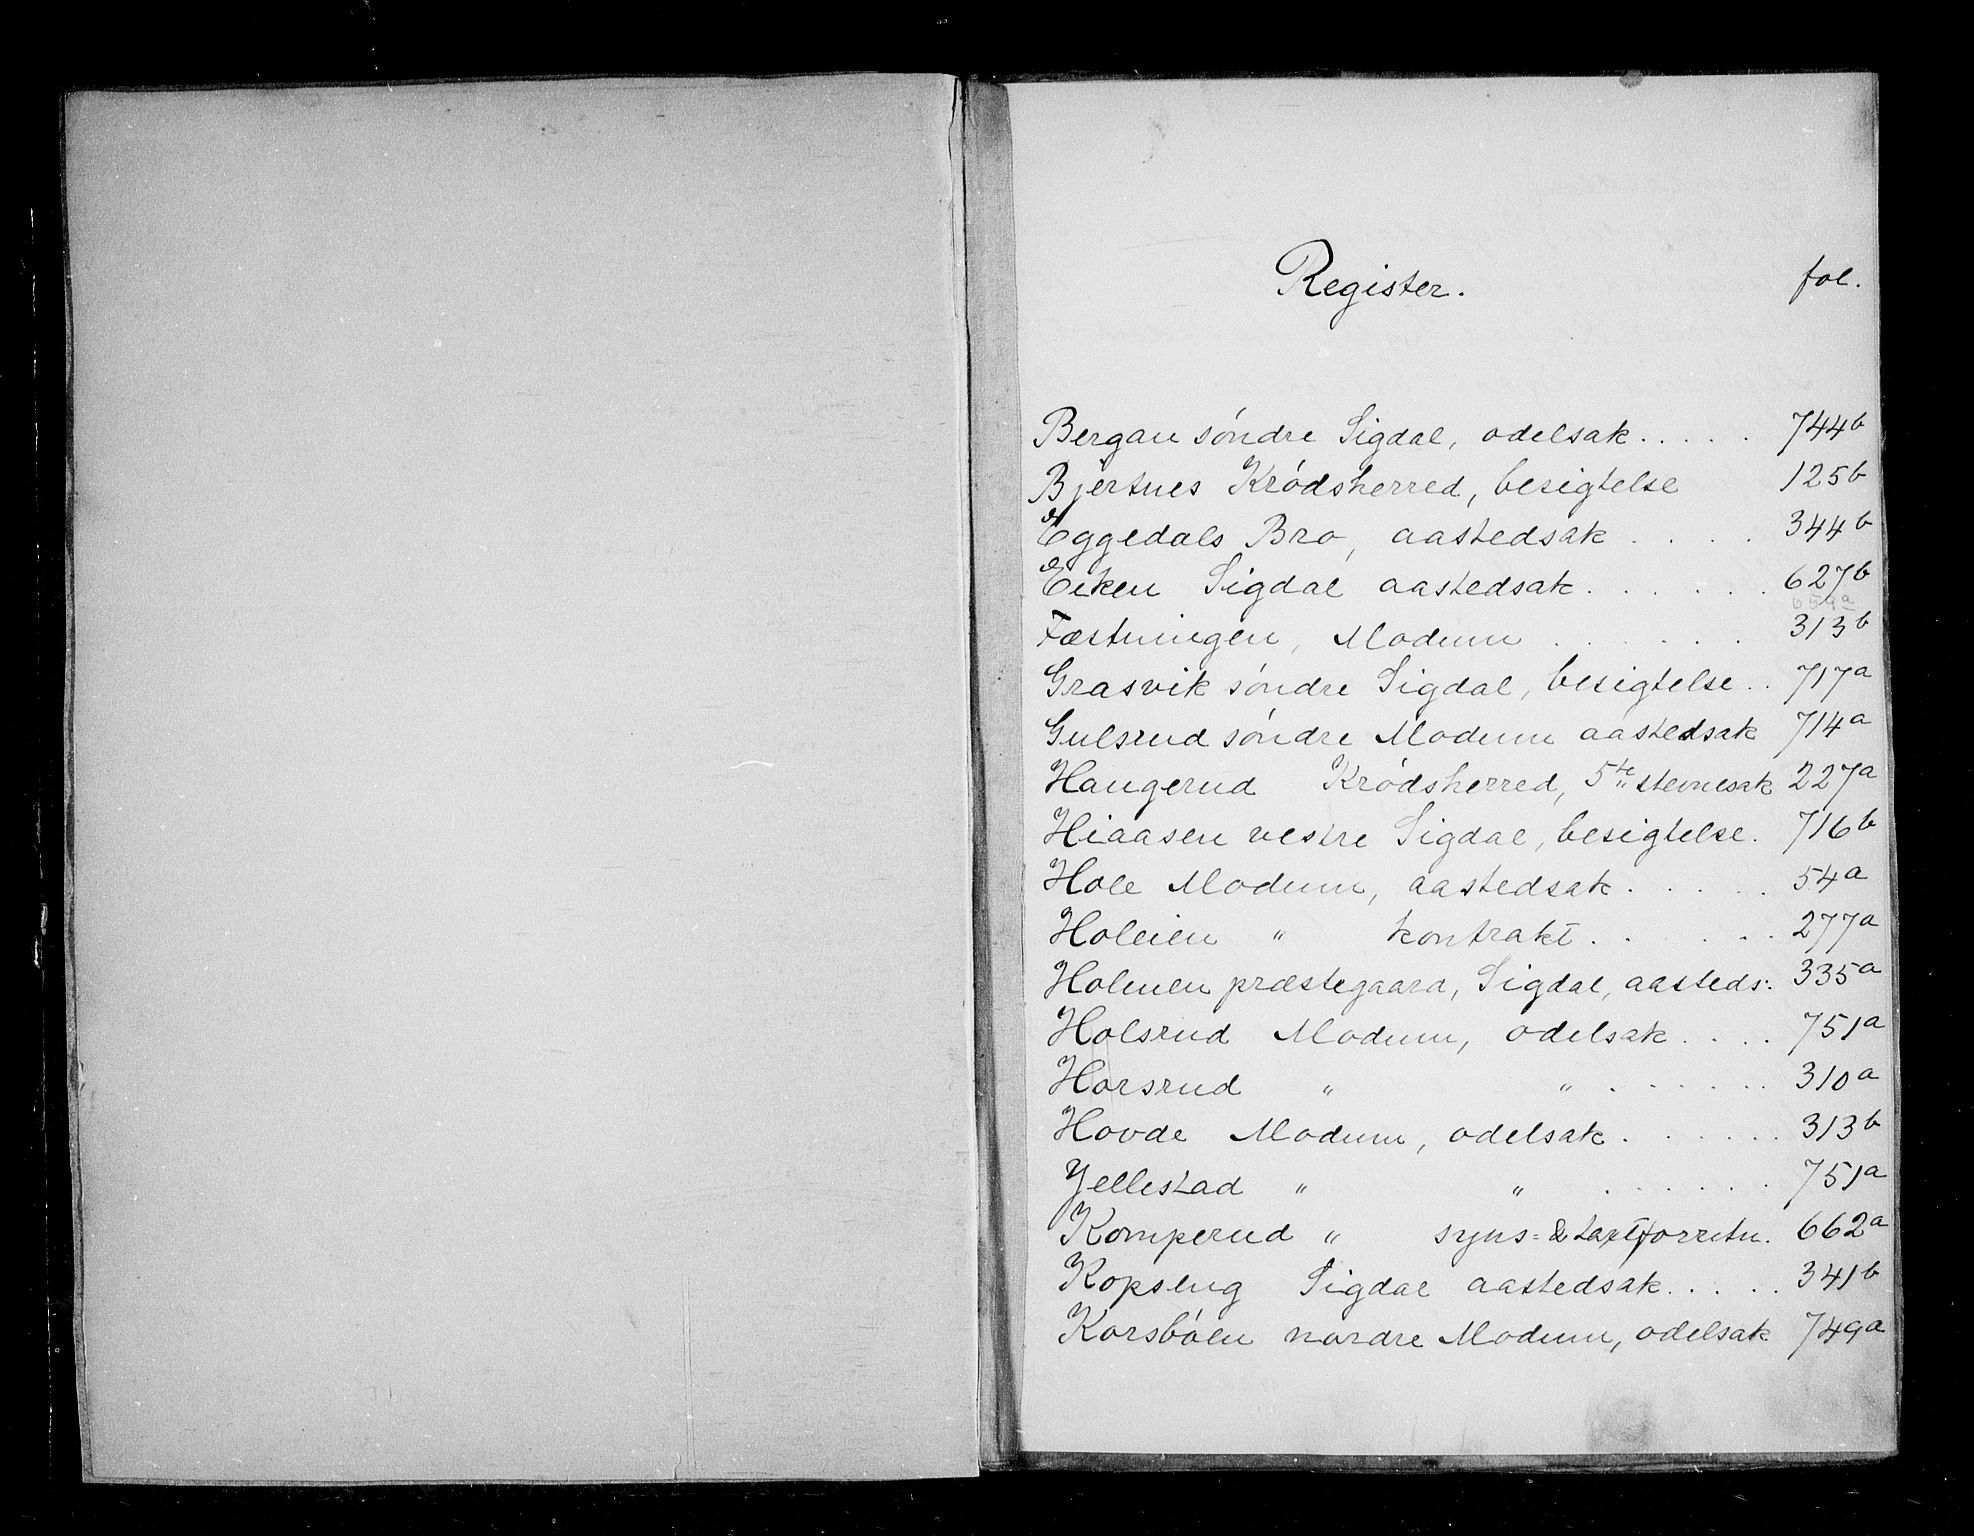 Register. fol.
Bergan söndre Sigdal, odelsak..... 744b
Bjertnes Krödsherred, besigtelse 125b
Eggedals Bro, aastedsak.... 344b
Eiken Sigdal aastedsak...... 627b
659a
Fæstningen, Modum...... 313b
Grasvik söndre Sigdal, besigtelse.. 717a
Gulsrud söndre Modum aastedsak 714a
Haugerud Krödsherred, 5te stevnesak 227a
Hiaasen vestre Sigdal, besigtelse. 716b
Hole Modum, aastedsak..... 54a
Holeien " kontrakt...... 277a
Holmen præstegaard, Sigdal, aasteds: 335a
Holsrud Modum, odelsak.... 751a
Horsrud " "...... 310a
Hovde Modum, odelsak...... 313b
Jellestad " "...... 751a
Komperud " syns= & taxtforretn. 662a
Kopseng Sigdal aastedsak..... 341b
Korsböen nordre Modum, odelsak 749a